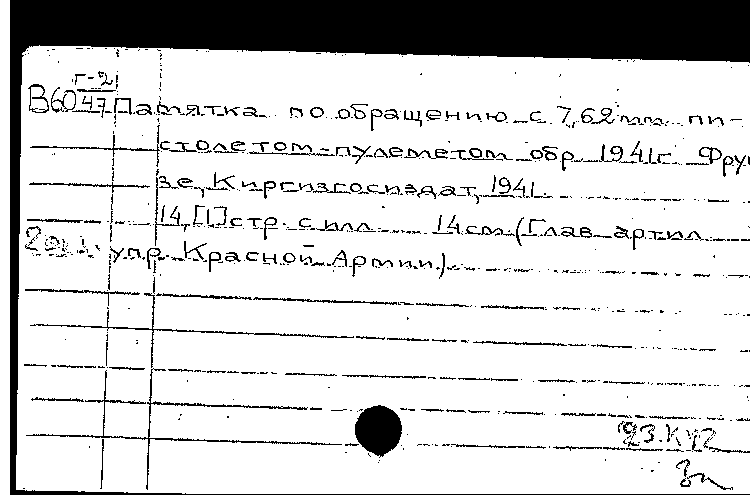 Г-2
В60/47 Памятка по обращению с 7,62 мм пи-
столетом-пулеметом обр 1941г Фрун
зе, Киргизгосиздат, 1941.
14,[1] стр. с илл. 14см (Глав артил
2экз. упр. Красной Армии).
93.КУ2